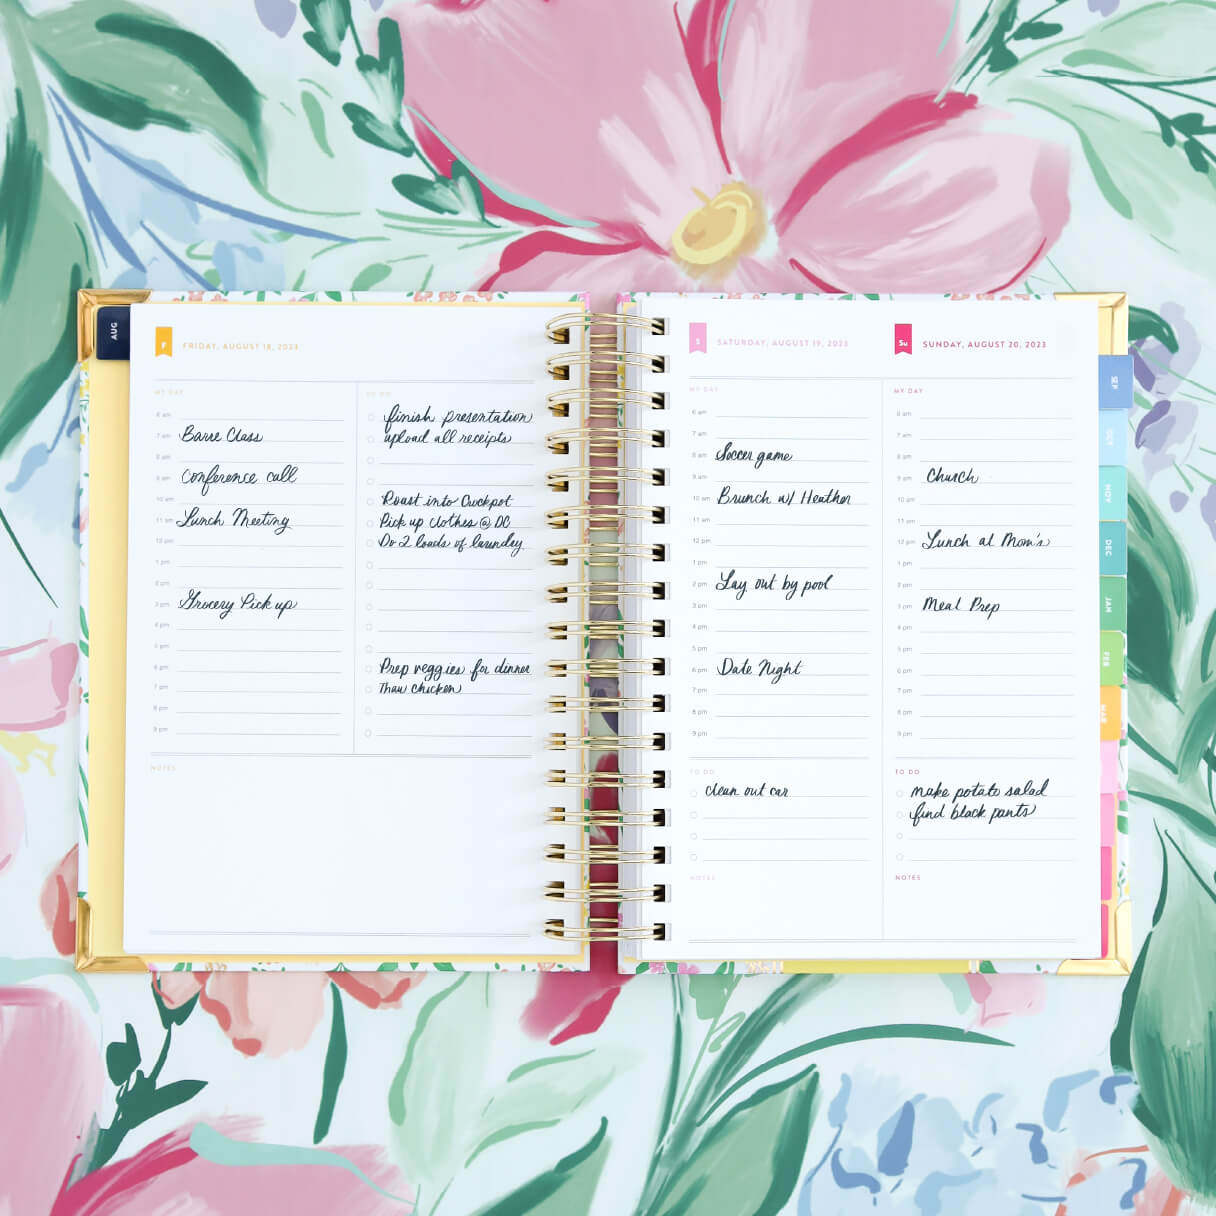 AUG
F
FRIDAY, AUGUST 18, 2023
MY DAY
6 am
7 am Barre Class
8 am
9 am Conference call
10 am
11 am Lunch Meeting
12 pm
1 pm
2 pm
3 pm Grocery Pick up
4 pm
5 pm
6 pm
7 pm
8 pm
9 pm
TO DO
finish presentation
upload all receipts
Roast into Crockpot
Pick up clothes @ DC
Do 2 loads of laundry
Prep veggies for dinner
Thaw chicken
NOTES
S
SATURDAY, AUGUST 19, 2023
MY DAY
6 am
7 am
8 am Soccer game
9 am
10 am Brunch w/ Heather
11 am
12 pm
1 pm
2 pm Lay out by pool
3 pm
4 pm
5 pm
6 pm Date Night
7 pm
8 pm
9 pm
TO DO
clean out car
NOTES
Su
SUNDAY, AUGUST 20, 2023
MY DAY
6 am
7 am
8 am
9 am Church
10 am
11 am
12 pm Lunch at Mom's
1 pm
2 pm
3 pm Meal Prep
4 pm
5 pm
6 pm
7 pm
8 pm
9 pm
TO DO
make potato salad
find black pants
NOTES
SEP
OCT
NOV
DEC
JAN
FEB
MAR